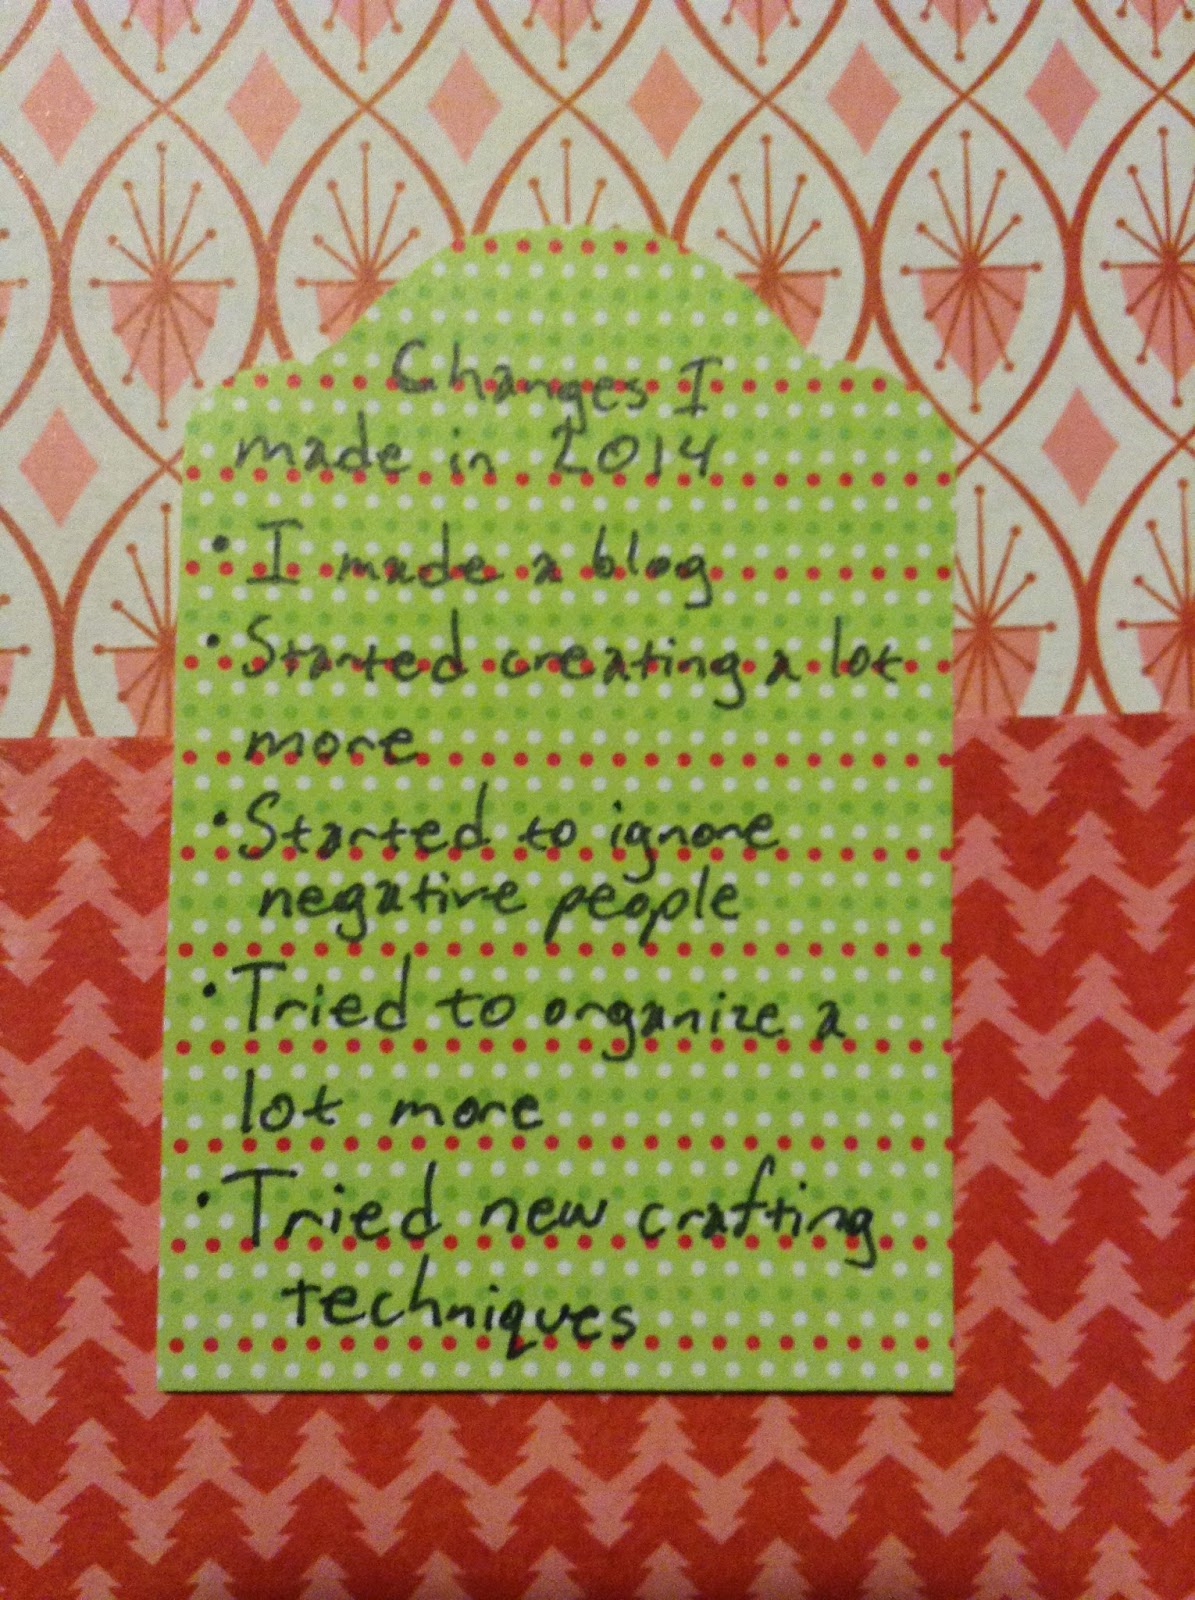 Changes I
made in 2014
• I made a blog
• Started creating a lot
more
• Started to ignore
negative people
• Tried to organize a
lot more
• Tried new crafting
techniques